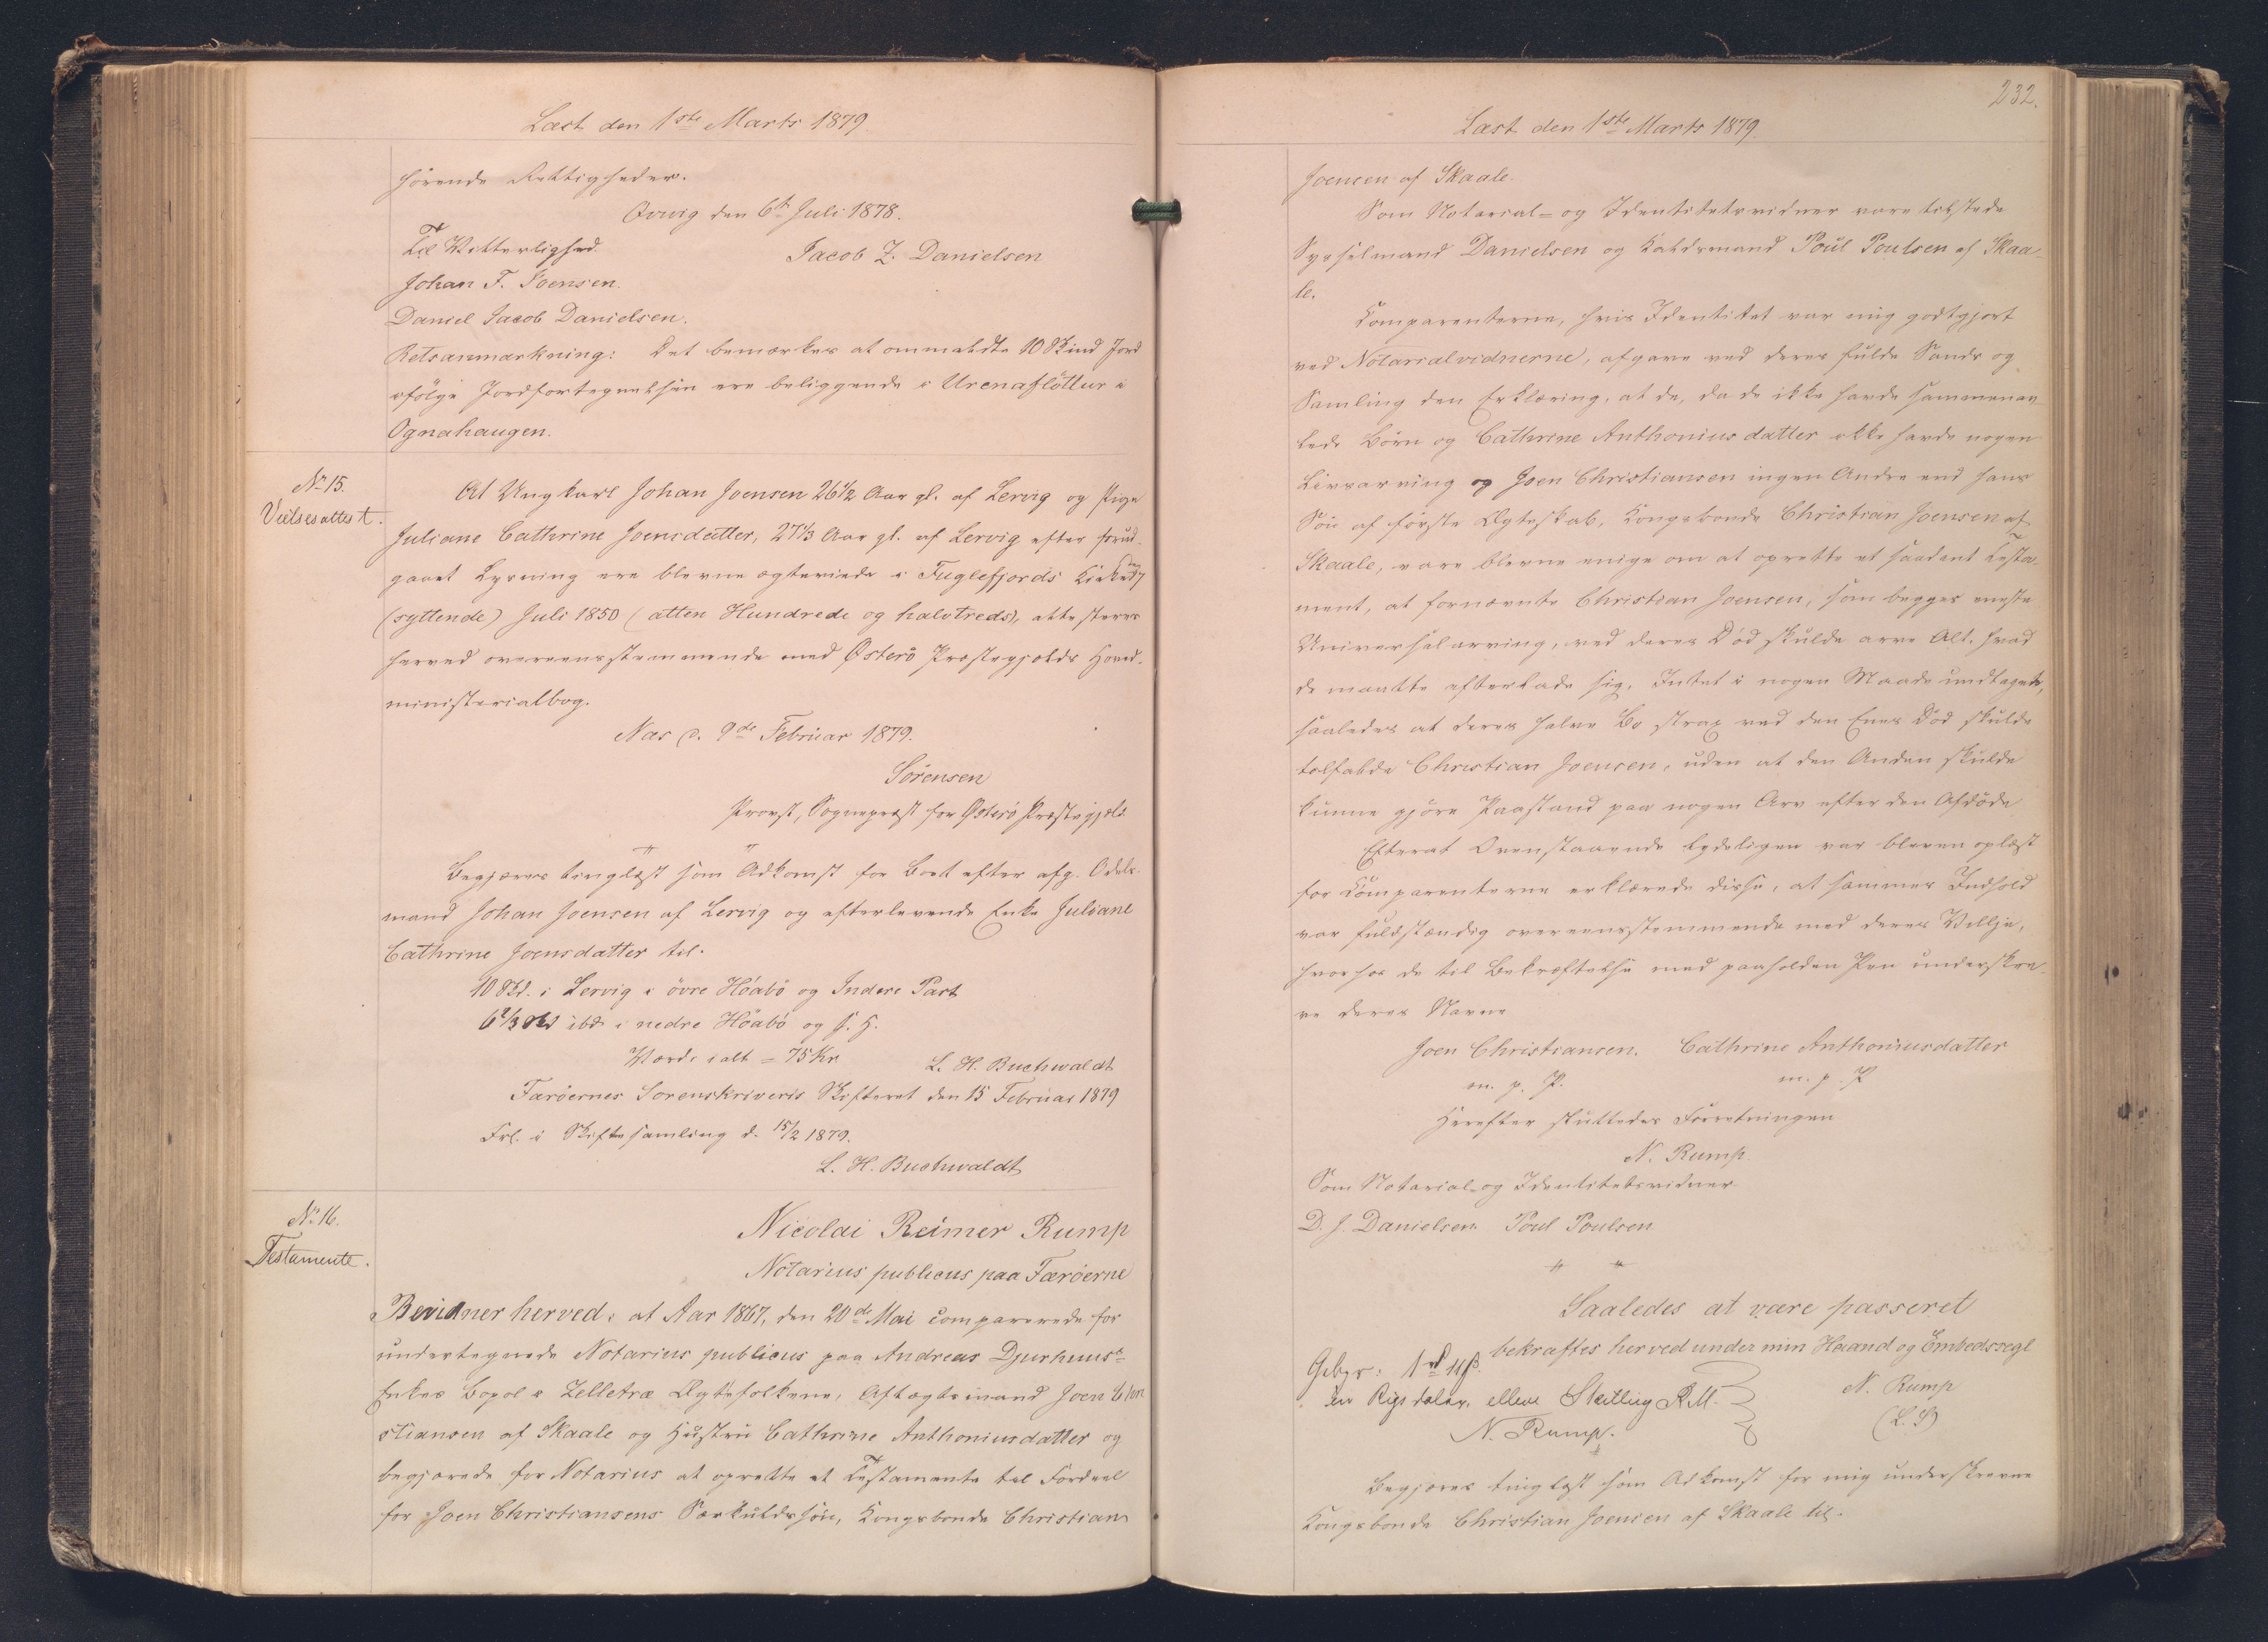 Læst den 1ste Marts 1879
hørende Rettigheder.
Qvivig den 6te Juli 1878.
Til Vitterlighed
Jacob Z. Danielsen
Johan F. Joensen.
Daniel Jacob Danielsen.
Retsanmærkning: Det bemærkes at ommeldte 10 Skind Jord
ifølge Jordfortegnelsen ere beliggende i Urenaflöttur i
Ognahaugen.
No 15.
Vielsesattest.
At Ungkarl Johan Joensen 26 1/2 Aar gl. af Lervig og Pige
Juliane Cathrine Joensdatter, 27 1/3 Aar gl. af Lervig efter forud-
gaaet Lysning ere blevne ægteviede i Fuglefjords Kirke den 17
(syttende) Juli 1850 (atten Hundrede og halvtreds), attesteres
herved overeensstemmende med Østerö Præstegjelds Hoved-
ministerialbog.
Næs d. 9de Februar 1879.
Sörensen
Provst, Sognepræst for Østerö Præstegjeld
Begjæres tinglæst som Adkomst for Boet efter afg. Odels-
mand Johan Joensen af Lervig og efterlevende Enke Juliane
Cathrine Joensdatter til.
10 Skd. i Lervig i övre Höabö og Indere Part
6 2/3 Skd ibd. i nedre Höabö og
Værdi ialt = 75 Kr.
L. H. Buchwaldt
Færöernes Sorenskriveris Skifteret den 15 Februar 1879
Frl. i Skiftesamling d. 15/2 1879.
L. H. Buchwaldt
No 16.
Testamente.
Nicolai Reimer Rump
Notarius publicus paa Færöerne
Bevidner herved: at Aar 1867, den 20de Mai comparerede for
undertegnede Notarius publicus paa Andreas Djurhuus's
Enkes Bopæl i Zelletræ Ægtefolkene, Aftægtsmand Joen Chri
stiansen af Skaale og Hustru Cathrine Anthoniusdatter og
begjærede for Notarius at oprette et Testamente til Fordeel
for Joen Christiansens Særkuldssön, Kongsbonde Christian
232.
Læst den 1ste Marts 1879.
Joensen af Skaale.
Som Notarial- og Identitetsvidner vare tilstede
Sysselmand Danielsen og Kaldsmand Poul Poulsen af Skaa-
le.
Comparenterne, hvis Identitet var mig godtgjort
ved Notarialvidnerne, afgave ved deres fulde Sands og
Samling den Erklæring, at de, da de ikke havde sammenav-
lede Börn og Cathrine Anthoniusdatter ikke havde nogen
Livsarving og Joen Christiansen ingen Andre end hans
Sön af förste Ægteskab, Kongsbonde Christian Joensen af
Skaale, vare blevne enige om at oprette et saadant Testa-
ment, at fornævnte Christian Joensen, som begges eneste
Universalarving, ved deres Död skulde arve Alt, hvad
de maatte efterlade sig, Intet i nogen Maade undtaget,
saaledes at deres halve Bo strax ved den Enes Död skulde
tilfalde Christian Joensen, uden at den Anden skulde
kunne gjöre Paastand paa nogen Arv efter den Afdöde
Efterat Ovenstaaende tydeligen var bleven oplæst
for Comparenterne erklærede disse, at sammes Indhold
var fuldstændig overeensstemmende med deres Villje,
hvorhos de til Bekræftelse med paaholden Pen underskre-
ve deres Navne
Joen Christiansen. Cathrine Anthoniusdatter
m. p. P. m. p. P
Herefter sluttedes Forretningen
N. Rump.
Som Notarial- og Identitetsvidner
D. J. Danielsen. Poul Poulsen
Saaledes at være passeret
bekræftes herved under min Haand og Embedssegl
Gebyr: 1 rd 11 ß.
Een Rigsdaler, elleve Skilling R.M.
N. Rump
N. Rump.
(L. S)
Begjæres tinglæst som Adkomst for mig underskrevne
Kongsbonde Christian Joensen af Skaale til.